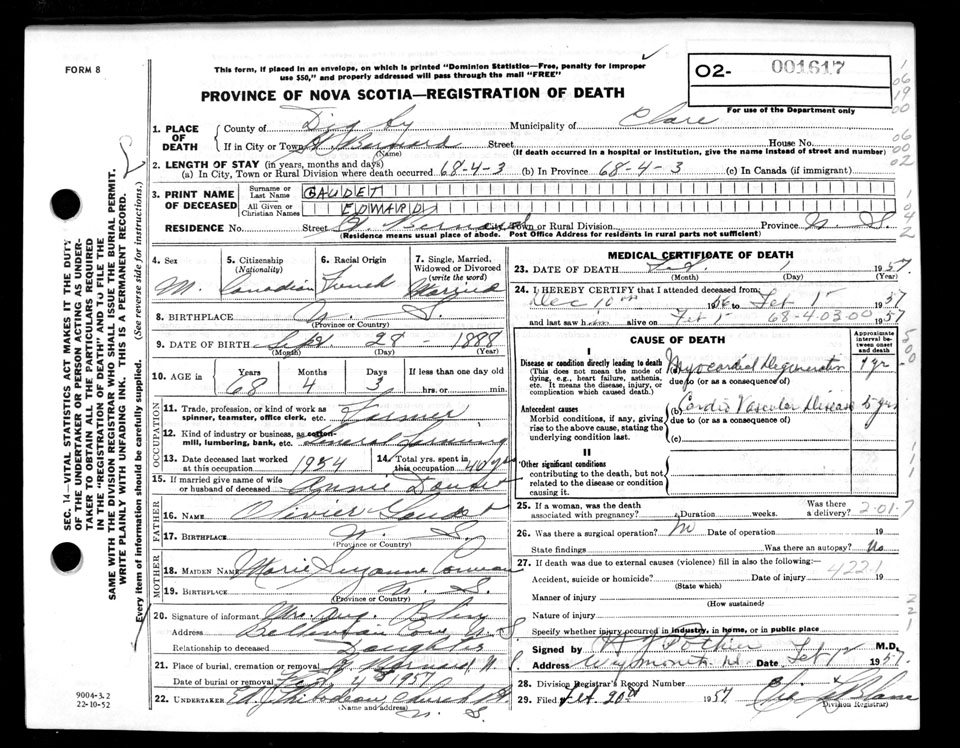 FORM 8
This form, if placed in an envelope, on which is printed "Dominion Statistics—Free, penalty for improper
use $50," and properly addressed will pass through the mail "FREE"
O2- 001617
For use of the Department only
PROVINCE OF NOVA SCOTIA—REGISTRATION OF DEATH
1. PLACE OF DEATH
County of Digby Municipality of Clare
If in City or Town St Bernard Street House No.
(Name) (If death occurred in a hospital or institution, give the name instead of street and number)
2. LENGTH OF STAY (in years, months and days)
(a) In City, Town or Rural Division where death occurred 68-4-3 (b) In Province 68-4-3 (c) In Canada (if immigrant)
3. PRINT NAME OF DECEASED
Surname or Last Name GAUDET
All Given or Christian Names EDWARD
RESIDENCE No. Street St. Bernard City, Town or Rural Division Province N. S.
(Residence means usual place of abode. Post Office Address for residents in rural parts not sufficient)
4. Sex M.
5. Citizenship (Nationality) Canadian
6. Racial Origin French
7. Single, Married, Widowed or Divorced (write the word) Married
8. BIRTHPLACE N. S.
(Province or County)
9. DATE OF BIRTH Sept 28 - 1888
(Month) (Day) (Year)
10. AGE in Years 68 Months 4 Days 3 If less than one day old hrs. or min.
OCCUPATION
11. Trade, profession, or kind of work as spinner, teamster, office clerk, etc. Farmer
12. Kind of industry or business, as cotton-mill, lumbering, bank, etc. General Farming
13. Date deceased last worked at this occupation 1954
14. Total yrs. spent in this occupation 40 yrs
15. If married give name of wife or husband of deceased Annie
FATHER
16. NAME Olivier Gaudet
17. BIRTHPLACE N. S.
(Province or Country)
MOTHER
18. MAIDEN NAME Marie Suzanne
19. BIRTHPLACE N. S.
(Province or Country)
20. Signature of informant Mrs.
Address Belliveau Cove N. S.
Relationship to deceased Daughter
21. Place of burial, cremation or removal St Bernard N. S.
Date of burial or removal Feb 4th 1957
22. UNDERTAKER Church Pt
(Name and address)
N. S.
MEDICAL CERTIFICATE OF DEATH
23. DATE OF DEATH Feb. 1 1957
(Month) (Day)
24. I HEREBY CERTIFY that I attended deceased from
Dec 10th 1956 to Feb 1st 1957
and last saw him alive on Feb 1st 68-4-03-00 1957
CAUSE OF DEATH
Approximate interval between onset and death
I
Disease or condition directly leading to death
(This does not mean the mode of dying, e.g., heart failure, asthenia, etc. It means the disease, injury, or complication which caused death.)
Myocardial Degeneration 1 yr
due to (or as a consequence of)
Antecedent causes
Morbid conditions, if any, giving rise to the above cause, stating the underlying condition last.
(b) Cardio Vascular Disease 5 yrs
due to (or as a consequence of)
(c)
II
Other significant conditions
contributing to the death, but not related to the disease or condition causing it.
25. If a woman, was the death associated with pregnancy? Duration weeks. Was there a delivery? 2-01-7
26. Was there a surgical operation? No Date of operation 19
State findings Was there an autopsy? No
27. If death was due to external causes (violence) fill in also the following:—
4221
Accident, suicide or homicide? Date of injury 19
(State which)
Manner of injury
(How sustained)
Nature of injury
Specify whether injury occurred in industry, in home, or in public place
Signed by Pothier M.D.
Address Weymouth N. Date Feb 1957.
28. Division Registrar's Record Number
29. Filed Feb. 20th 1957
(Division Registrar)
SEC. 14—VITAL STATISTICS ACT MAKES IT THE DUTY
OF THE UNDERTAKER OR PERSON ACTING AS UNDER-
TAKER TO OBTAIN ALL THE PARTICULARS REQUIRED
IN THE "REGISTRATION OF DEATH" AND TO FILE THE
SAME WITH THE DIVISION REGISTRAR WHO SHALL ISSUE THE BURIAL PERMIT.
WRITE PLAINLY WITH UNFADING INK. THIS IS A PERMANENT RECORD.
Every item of information should be carefully supplied. (See reverse side for instructions.)
9004-3.2
22-10-52